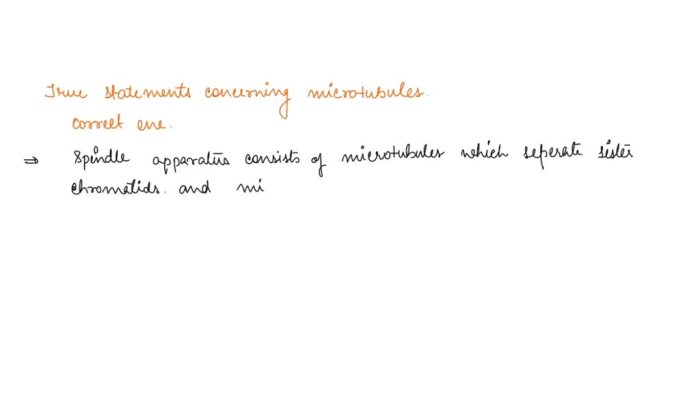 True statements concerning microtubules.
correct one.
⇒ Spindle apparatus consists of microtubules which seperate sister
chromatids. and mi